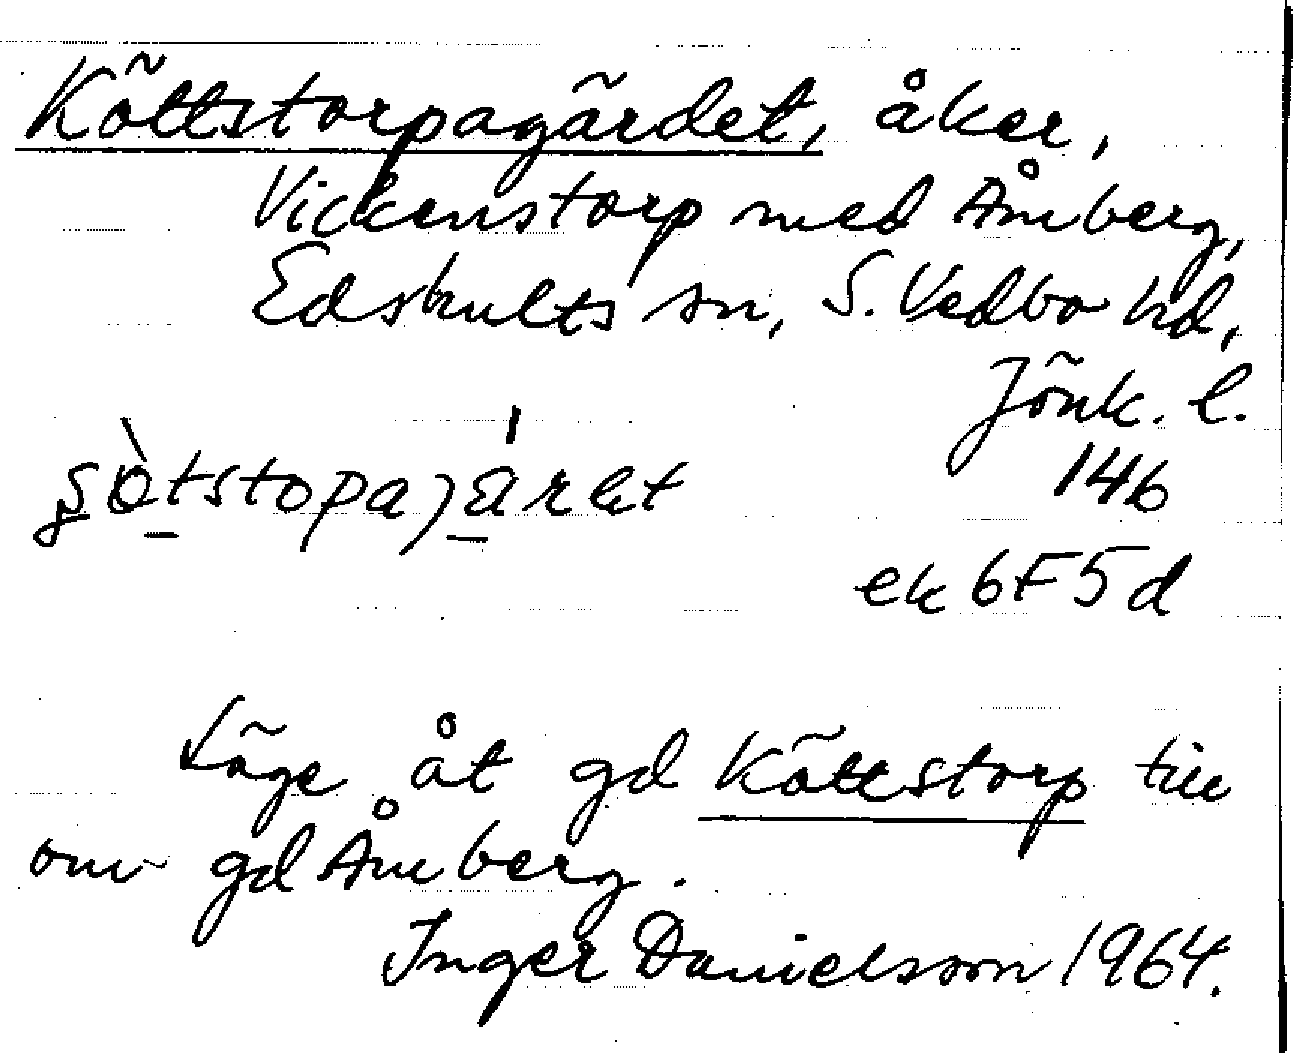 Köttstorpagärdet, åker,
Vickenstorp med Åmberg,
Edshults sn, S. Vedbo hd,
Jönk. l.
146
ek 6F5d
Läge åt gd Köttstorp till
om gd Åmberg.
Inger Danielsson 1964.